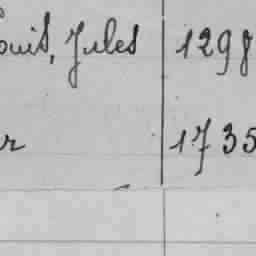 ouis, Jules 1298
r 1735